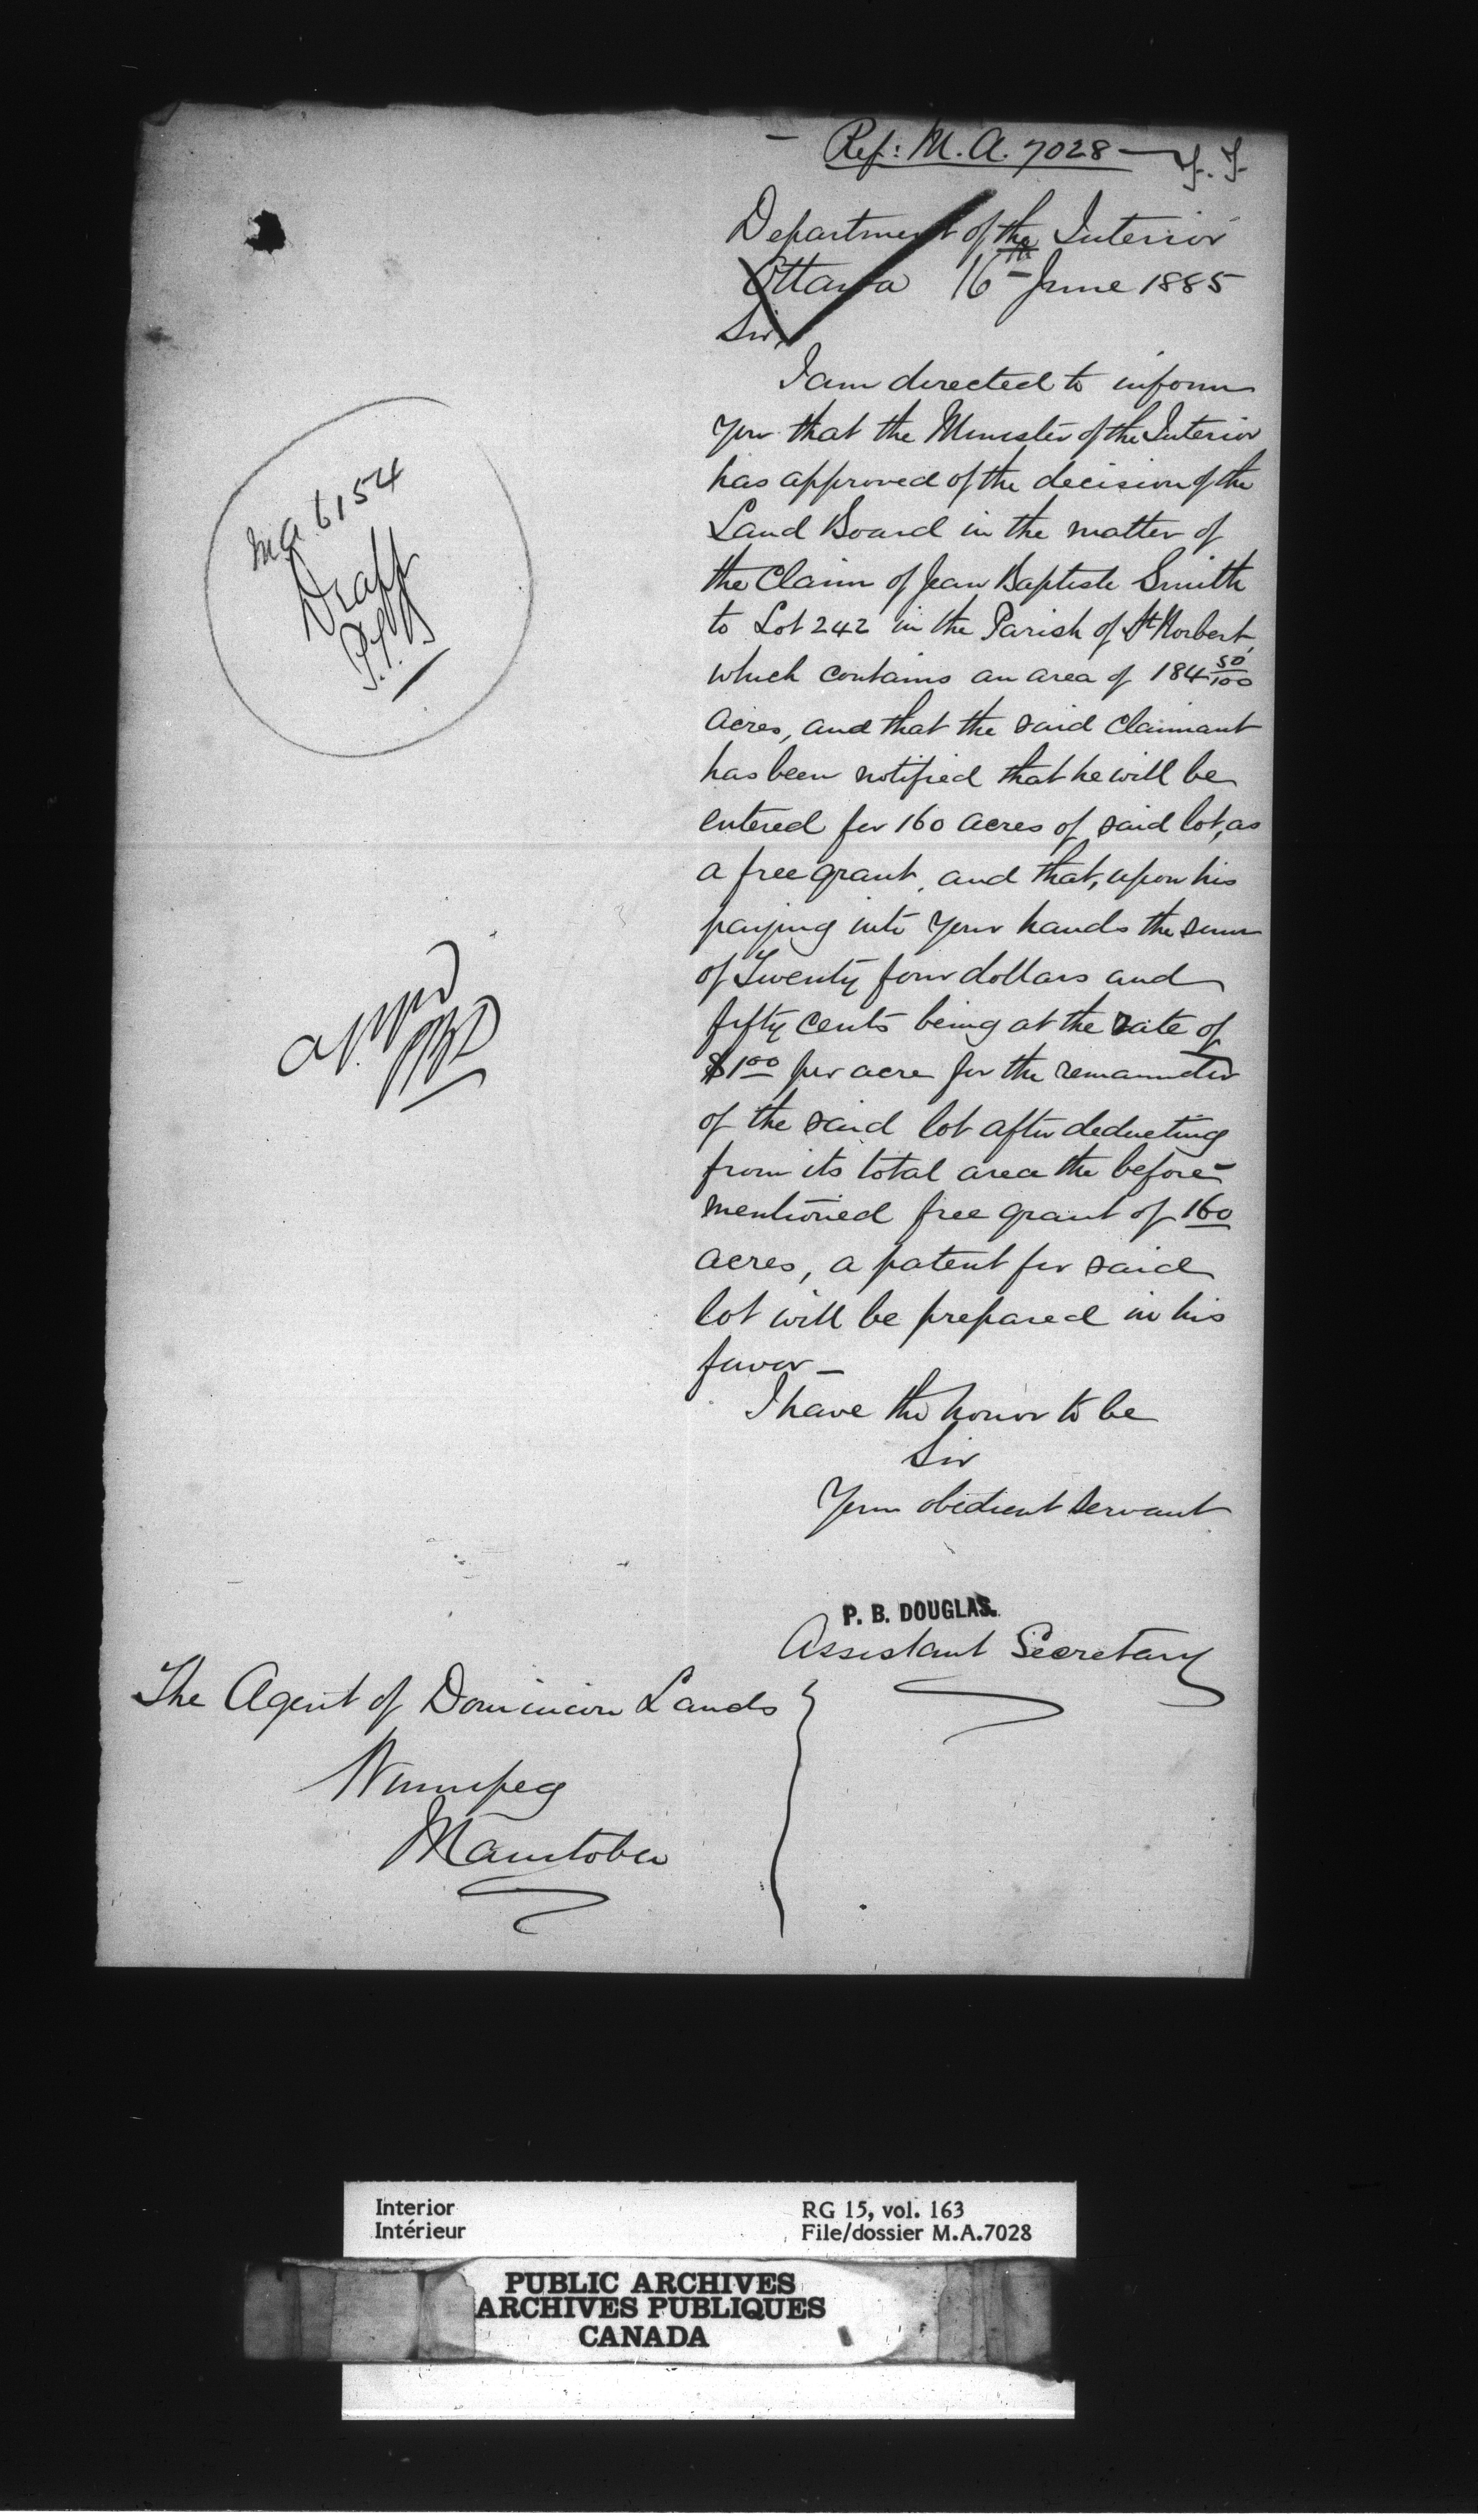 Ref: M.A. 7028
Department of the Interior
Ottawa 16th June 1885
Sir,
I am directed to inform
you that the Minister of the Interior
has approved of the decision of the
Land Board in the matter of
the Claim of Jean Baptiste Smith
to Lot 242 in the Parish of St Norbert,
which contains an area of 184 50/100
acres, and that the said Claimant
has been notified that he will be
entered for 160 acres of said lot, as
a free grant, and that, upon his
paying into your hands the sum
of Twenty four dollars and
fifty cents being at the rate of
$1.00 per acre for the remainder
of the said lot after deducting
from its total area the before-
mentioned free grant of 160
acres, a patent for said
lot will be prepared in his
favor—
I have the honor to be
Sir
Your obedient servant
P. B. DOUGLAS.
Assistant Secretary
The Agent of Dominion Lands
Winnipeg
Manitoba
M.A. 6154
Draft
Interior
Intérieur
RG 15, vol. 163
File/dossier M.A.7028
PUBLIC ARCHIVES
ARCHIVES PUBLIQUES
CANADA